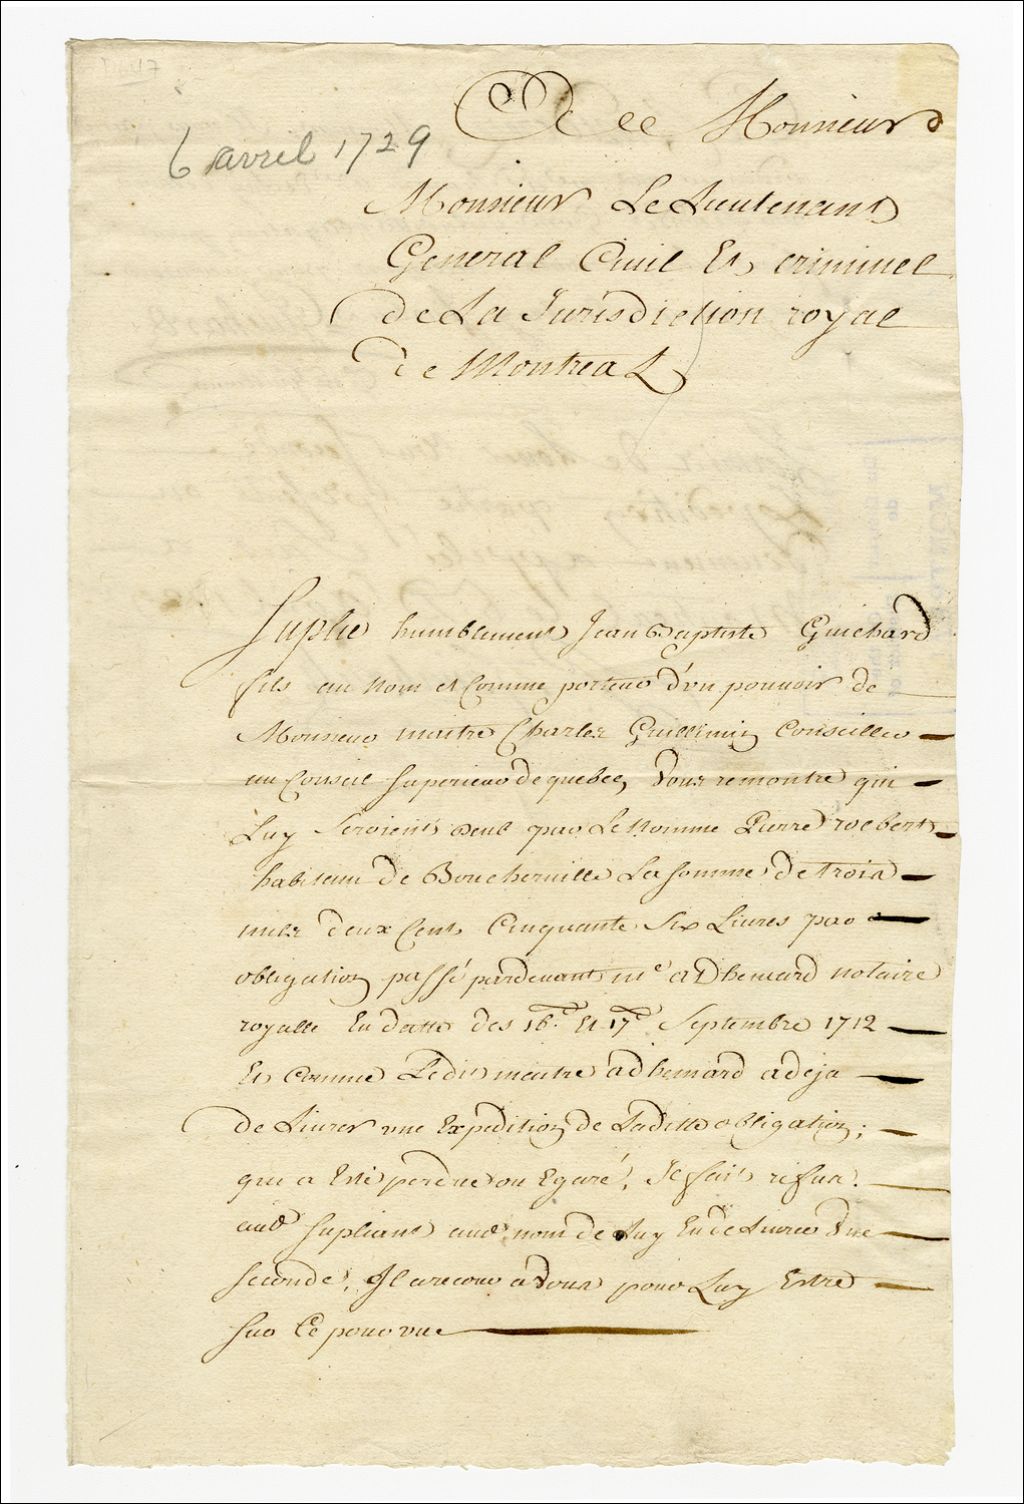 6 avril 1729
A Monsieur
Monsieur Le Lieutenant
General Civil Et criminel
de La Jurisdiction royal
de Montreal
Suplie humblement Jean Baptiste Guichard
fils au nom et Comme porteur d'un pouvoir de
Monsieur maitre Charles Guillimin Conseiller
au Conseil Superieur de quebec, Vous remontre qui
Luy Seroient deub par Le Nomme Pierre robert
habitant de Boucherville La somme de trois
mils deux Cent Cinquante Six Livres par
obligation passé pardevant me adhemard notaire
royalle En datte des 16e Et 17e Septembre 1712
Et Comme Ledit maitre adhemard adeja
de Livrer une Expedition de Laditte obligation;
qui a Esté perdue ou Egaré, Il fait refus
aud Supliant aud nom de Luy En de Livrer Une
Seconde, Il a recour a Vous pour Luy Estre
Sur Ce pourvue